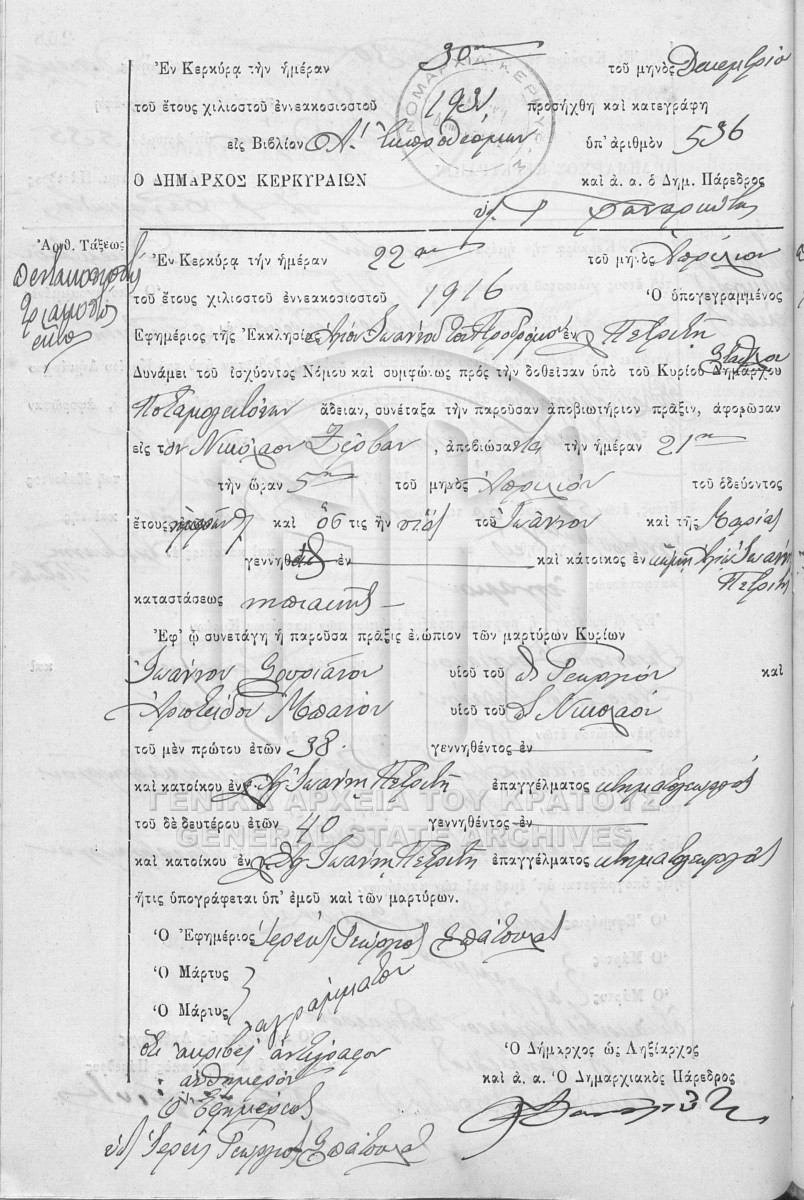 Ἐν Κερκύρᾳ τὴν ἡμέραν 30ην τοῦ μηνὸς Δεκεμβρίου
τοῦ ἔτους χιλιοστοῦ ἐννεακοσιοστοῦ 1931 προσήχθη καὶ κατεγράφη
εἰς Βιβλίον Α. Ἐκπροθέσμων ὑπ' ἀριθμὸν 536
Ο ΔΗΜΑΡΧΟΣ ΚΕΡΚΥΡΑΙΩΝ καὶ ἀ. α. ὁ Δημ. Πάρεδρος
ΝΟΜΑΡΧΙΑ ΚΕΡΚΥΡΑΣ
Ἀριθ. Τάξεως
Πεντακόσια
τριάκοντα
Ἐν Κερκύρᾳ τὴν ἡμέραν 22αν τοῦ μηνὸς Ἀπριλίου
τοῦ ἔτους χιλιοστοῦ ἐννεακοσιοστοῦ 1916 Ὁ ὑπογεγραμμένος
Ἐφημέριος τῆς Ἐκκλησίας Ἁγίου Ἰωάννου τοῦ Προδρόμου ἐν Πετριτῇ
Δυνάμει τοῦ ἰσχύοντος Νόμου καὶ συμφώνως πρὸς τὴν δοθεῖσαν ὑπὸ τοῦ Κυρίου Δημάρχου
ἄδειαν, συνέταξα τὴν παροῦσαν ἀποβιωτήριον πρᾶξιν, ἀφορῶσαν
εἰς τὸν Νικόλαον Ζέρβαν, ἀποβιώσαντα τὴν ἡμέραν 21ην
τὴν ὥραν 5ην τοῦ μηνὸς Ἀπριλίου τοῦ ὁδεύοντος
ἔτους καὶ ὅστις ἦν υἱός τοῦ Ἰωάννου καὶ τῆς Μαρίας
γεννηθεὶς ἐν καὶ κάτοικος ἐν κώμῃ Ἁγίου Ἰωάννη
Πετριτῆ
καταστάσεως
Ἐφ' ᾧ συνετάγη ἡ παροῦσα πρᾶξις ἐνώπιον τῶν μαρτύρων Κυρίων
Ἰωάννου υἱοῦ τοῦ Γεωργίου καὶ
Ἀριστείδου Μπανου υἱοῦ τοῦ Νικολάου
τοῦ μὲν πρώτου ἐτῶν 38. γεννηθέντος ἐν
καὶ κατοίκου ἐν Ἁγ Ἰωάννη Πετριτῆ ἐπαγγέλματος κτηματίας γεωργός
ΓΕΝΙΚΑ ΑΡΧΕΙΑ ΤΟΥ ΚΡΑΤΟΥΣ
τοῦ δὲ δευτέρου ἐτῶν 40 γεννηθέντος ἐν
GENERAL STATE ARCHIVES
καὶ κατοίκου ἐν Ἁγ Ἰωάννη Πετριτῆ ἐπαγγέλματος κτηματίας γεωργός
ἥτις ὑπογράφεται ὑπ' ἐμοῦ καὶ τῶν μαρτύρων.
Ὁ Ἐφημέριος Ἱερεὺς Γεώργιος
Ὁ Μάρτυς
Ὁ Μάρτυς ἀγράμματοι
ἀκριβὲς ἀντίγραφον
αὐθημερόν
Ὁ Ἐφημέριος
Ἱερεὺς Γεώργιος
Ὁ Δήμαρχος ὡς Ληξίαρχος
καὶ ἀ. α. Ὁ Δημαρχιακὸς Πάρεδρος